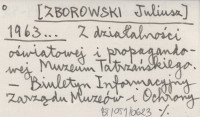 [ZBOROWSKI Juliusz]
1963... Z działalności
oświatowej i propagando-
wej Muzeum Tatrzańskiego.
– Biuletyn Informacyjny
Zarządu Muzeów i Ochrony
%